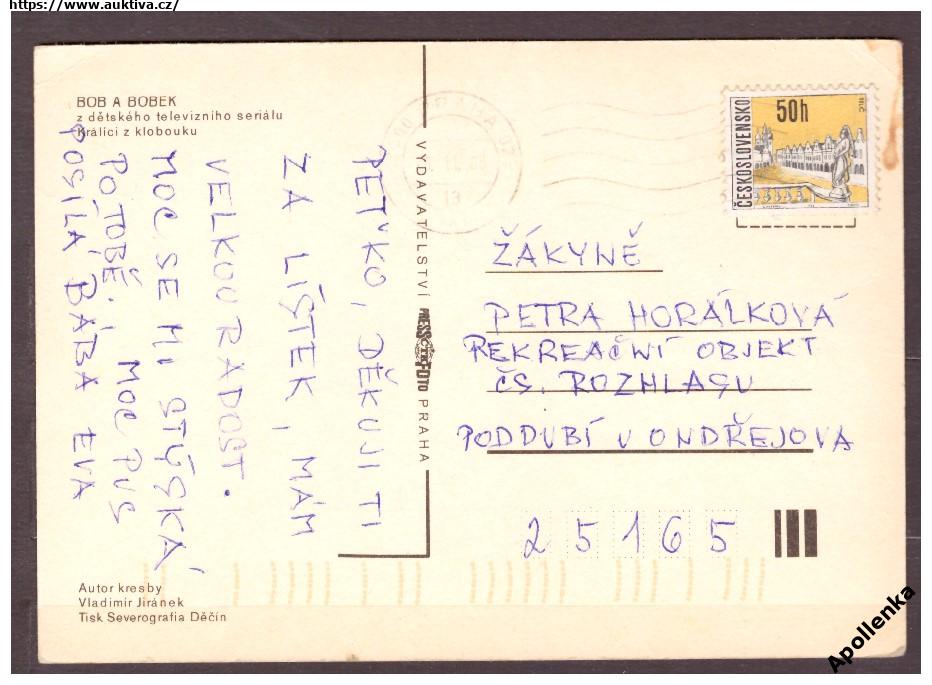 https://www.auktiva.cz/
BOB A BOBEK
z dětského televizního seriálu
Králíci z klobouku
PEŤKO, DĚKUJI TI
ZA LÍSTEK, MÁM
VELKOU RADOST.
MOC SE MI STÝSKÁ
PO TOBĚ. MOC PUS
POSÍLÁ BÁBA EVA
Autor kresby
Vladimír Jiránek
Tisk Severografia Děčín
VYDAVATELSTVÍ PRESSFOTO PRAHA
ČESKOSLOVENSKO
50h
ŽÁKYNĚ
PETRA HORÁLKOVÁ
REKREAČNÍ OBJEKT
ČS. ROZHLASU
PODDUBÍ U ONDŘEJOVA
25165
Apollenka